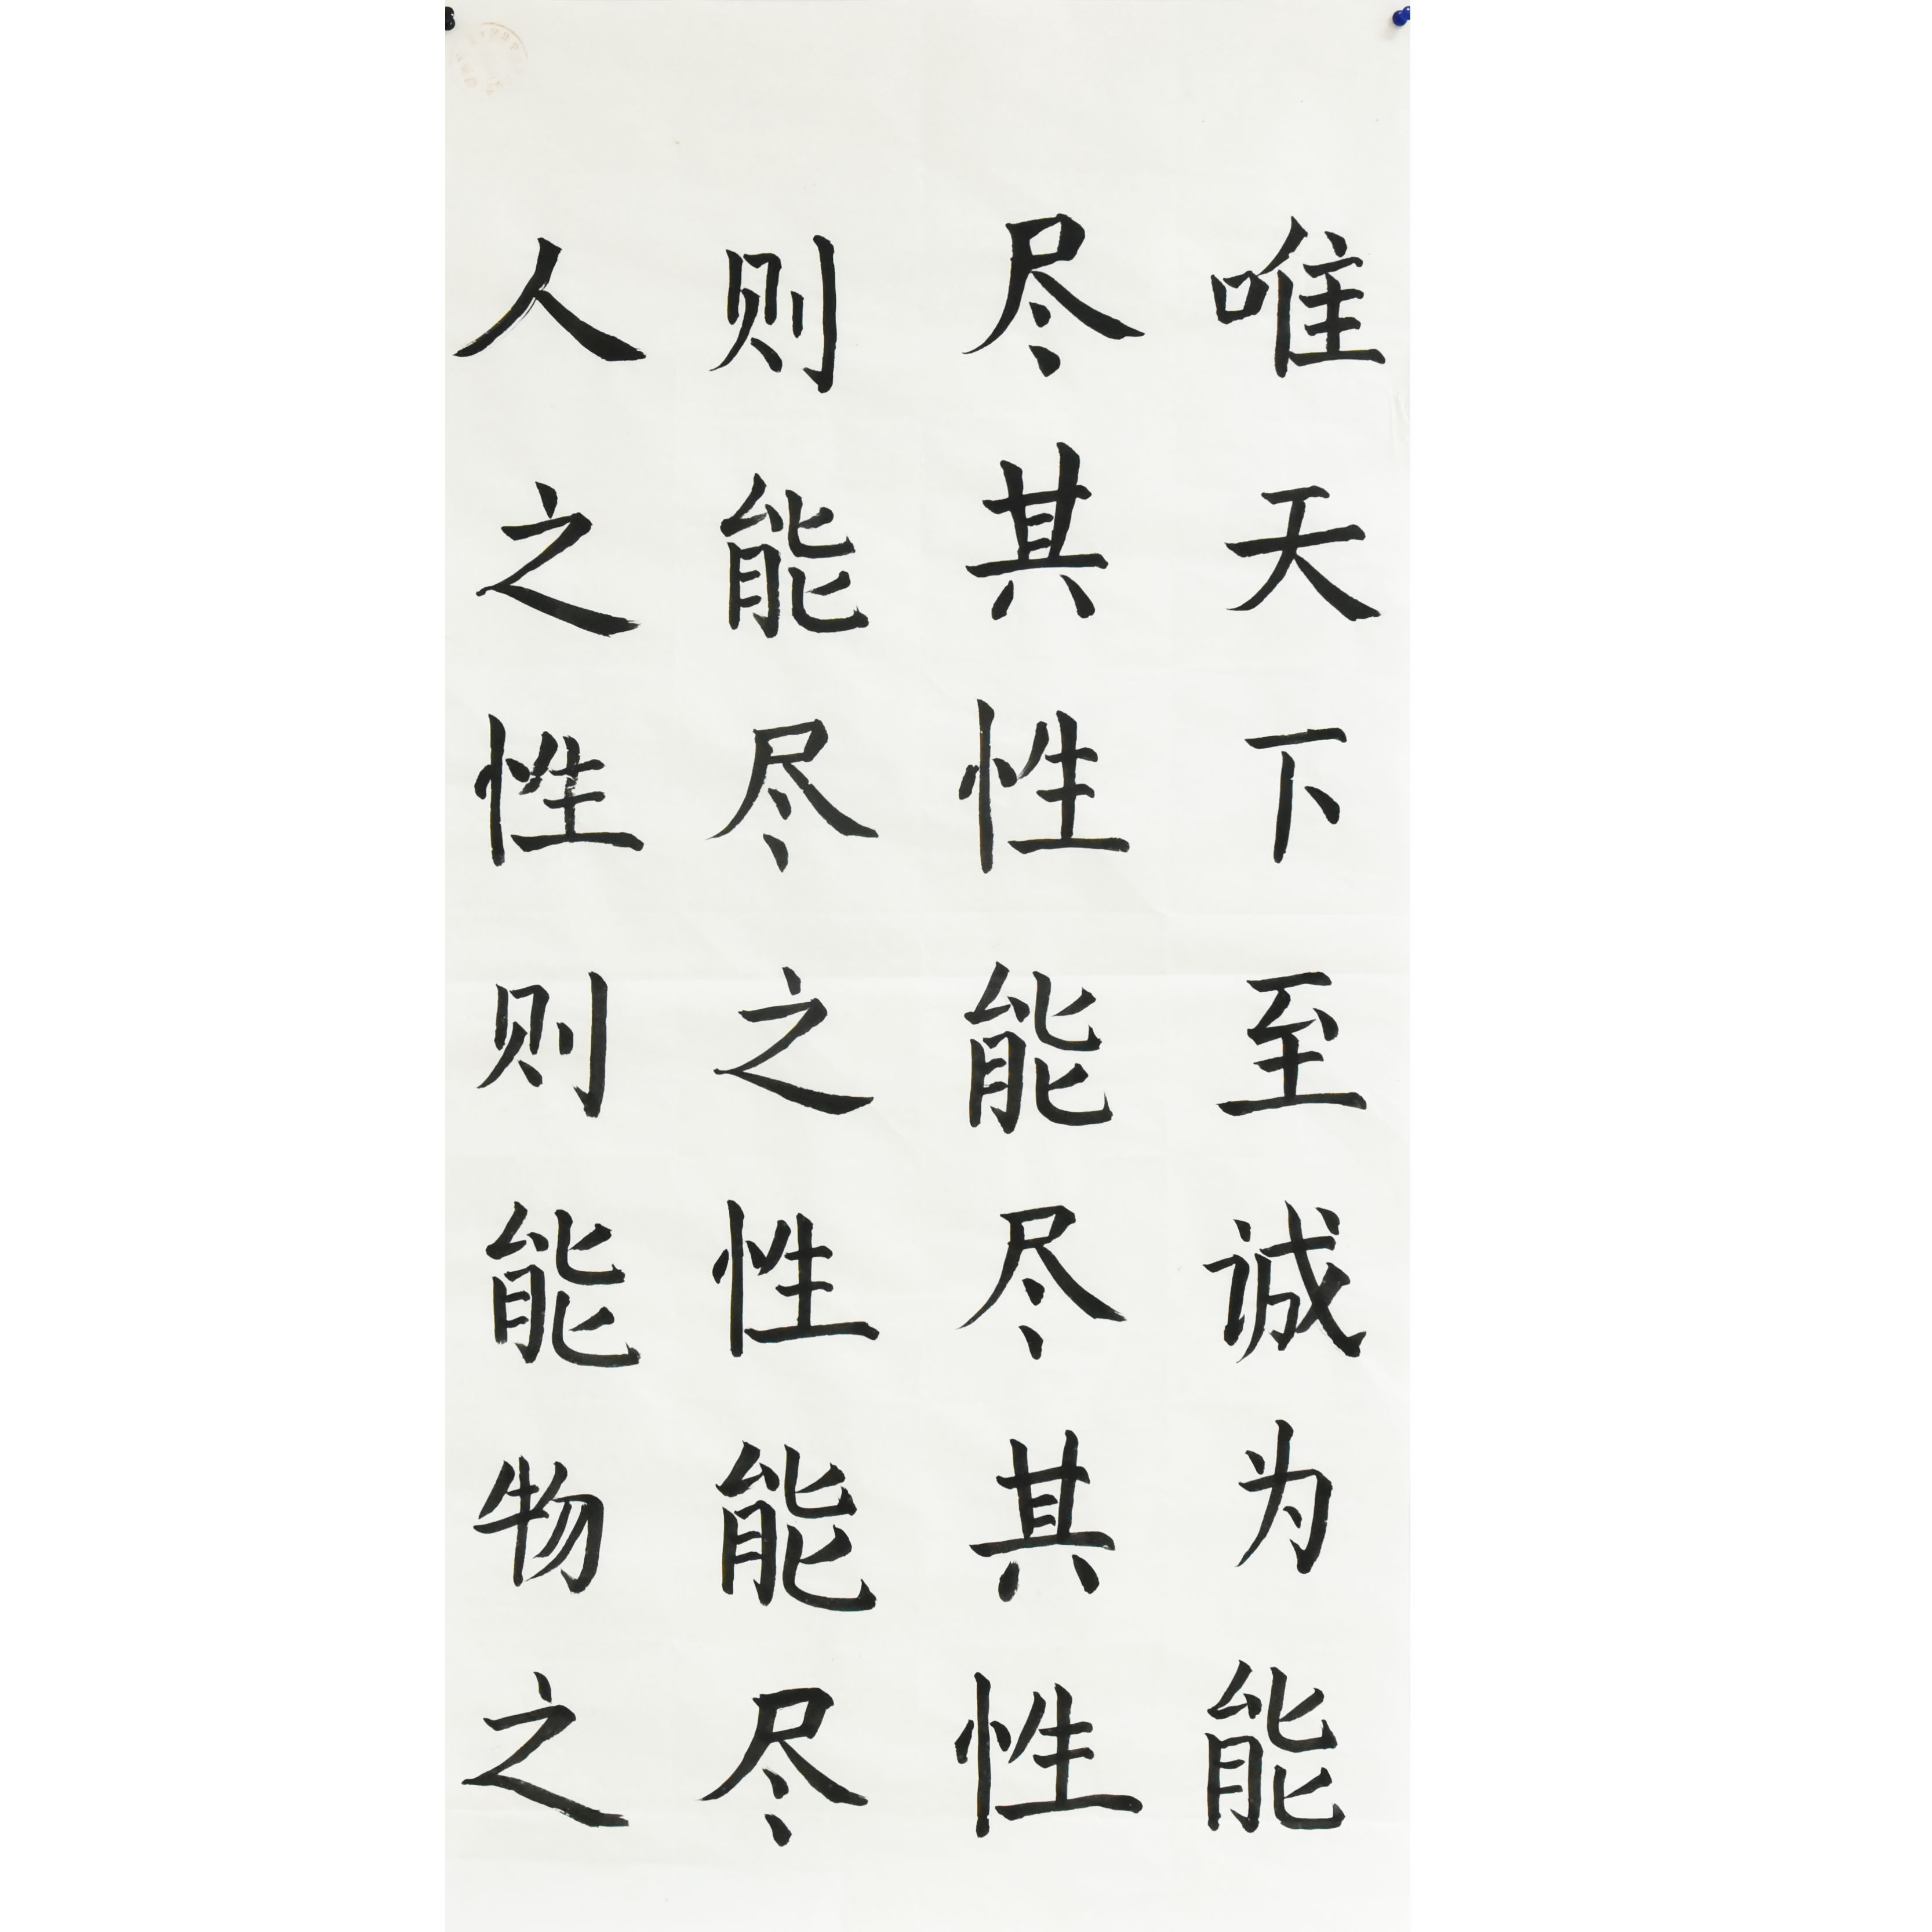 唯天下至诚为能
尽其性能尽其性
则能尽之性能尽
人之性则能物之